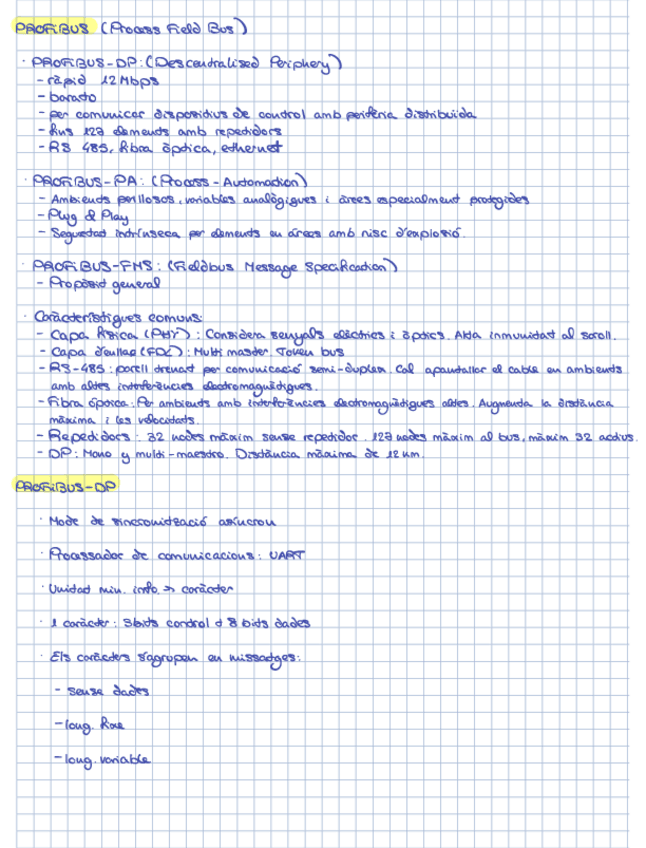 PROFIBUS (Process Field Bus)
· PROFIBUS-DP: (Descentralised Periphery)
- ràpid 12 Mbps
- barato
- per comunicar dispositius de control amb perifèria distribuïda
- fins 127 elements amb repetidors
- RS 485, fibra òptica, ethernet
· PROFIBUS-PA: (Process-Automation)
- Ambients perillosos, variables analògiques i àrees especialment protegides
- Plug & Play
- Seguretat intrínseca per elements en àreas amb risc d'explosió.
· PROFIBUS-FMS: (Fieldbus Message Specification)
- Propòsit general
· Característiques comuns:
- Capa física (PHY): Considera senyals elèctrics i òptics. Alta inmunitat al soroll.
- Capa d'enllaç (FDL): Multi master. Token bus
- RS-485: parell trenat per comunicació semi-duplex. Cal apantallar el cable en ambients
amb altes interferències electromagnètiques.
- Fibra óptica: Per ambients amb interferències electromagnètiques altes. Augmenta la distància
màxima i les velocitats.
- Repetidors: 32 nodes màxim sense repetidor. 127 nodes màxim al bus, màxim 32 actius.
- DP: Mono y multi-maestro. Distància màxima de 12 km.
PROFIBUS-DP
· Mode de sincronització asíncron
· Processador de comunicacions: UART
· Unidad min. info. → caràcter
· 1 caràcter: 3bits control + 8 bits dades
· Els caràcters s'agrupen en missatges:
- sense dades
- long. fixe
- long. variable